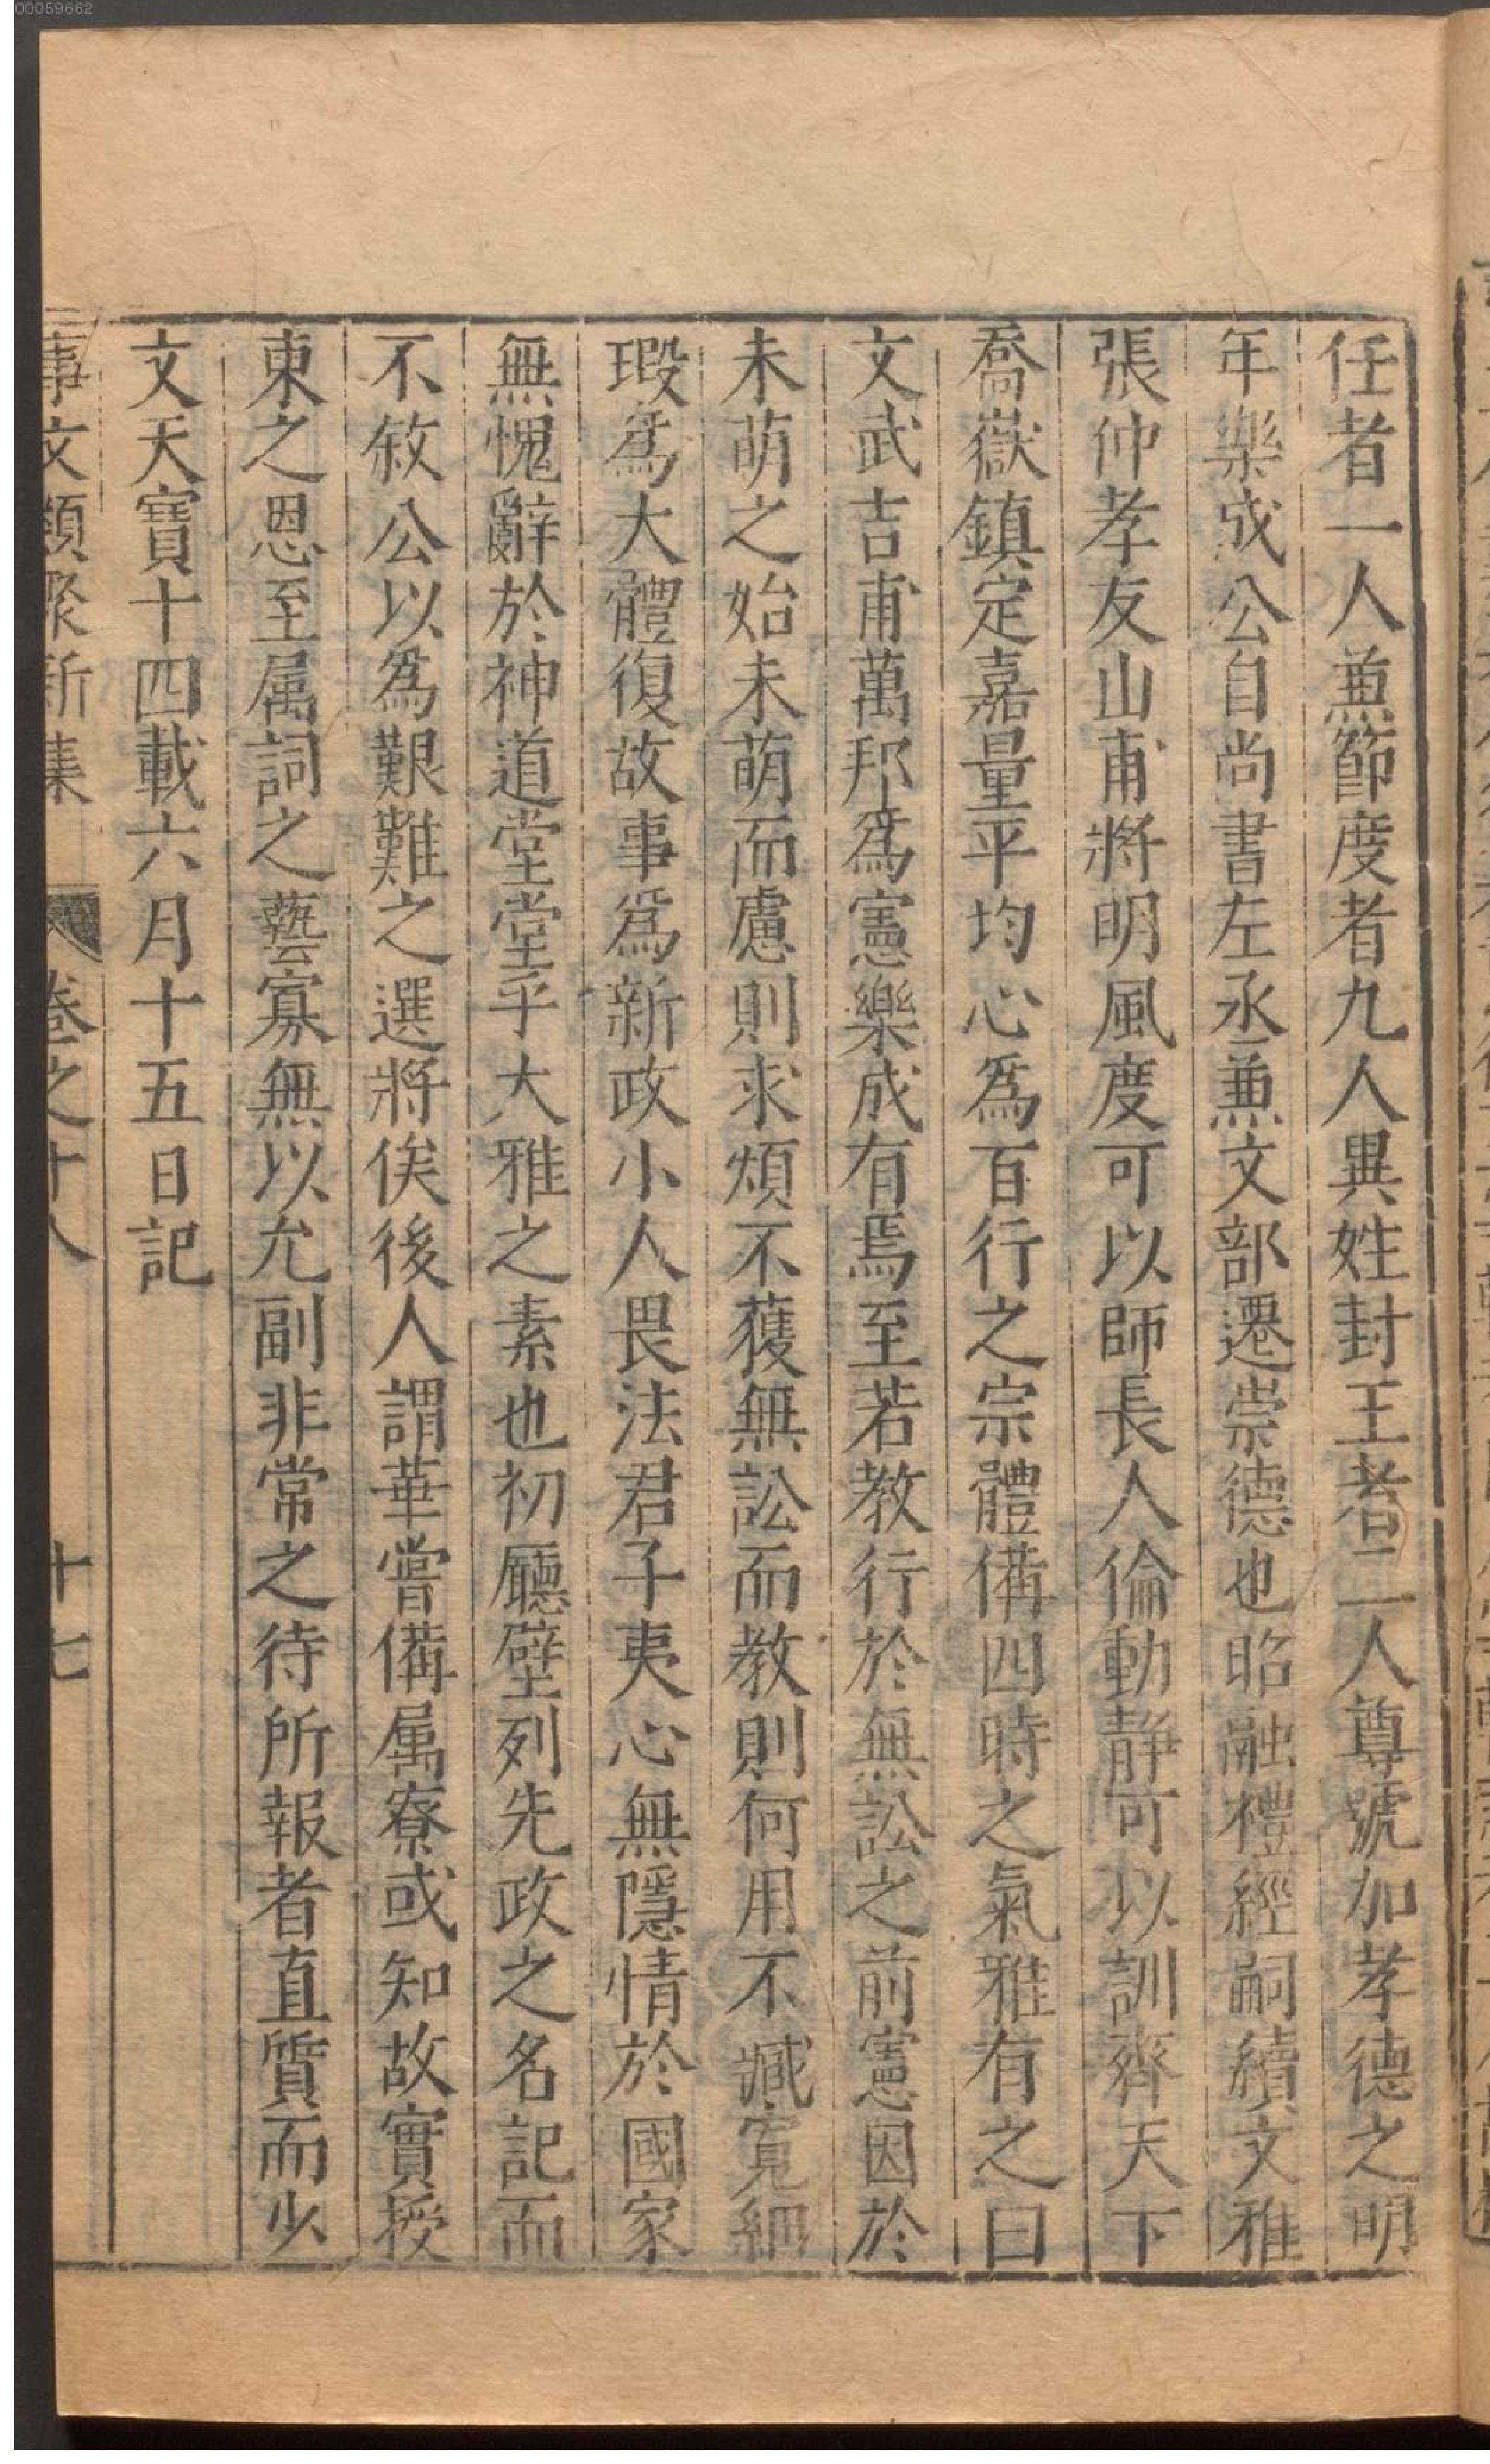 00059662
任者一人兼節度者九人異姓封王者二人尊號加孝德之明
年樂成公自尚書左丞兼文部遷崇德也昭融禮經嗣續文雅
張仲孝友山甫將明風度可以師長人倫動靜可以訓齊天下
喬嶽鎮定嘉量平均心為百行之宗體備四時之氣雅有之曰
文武吉甫萬邦為憲樂成有焉至若教行於無訟之前憲因於
未萌之始未萌而慮則求煩不獲無訟而教則何用不臧寬細
瑕為大體復故事為新政小人畏法君子夷心無隱情於國家
無愧辭於神道堂堂乎大雅之素也初廳壁列先政之名記而
不敘公以為艱難之選將俟後人謂華嘗備属寮或知故實授
束之恩至属詞之藝寡無以允副非常之待所報者直質而少
文天寶十四載六月十五日記
事文類聚新集 卷之十八 十七